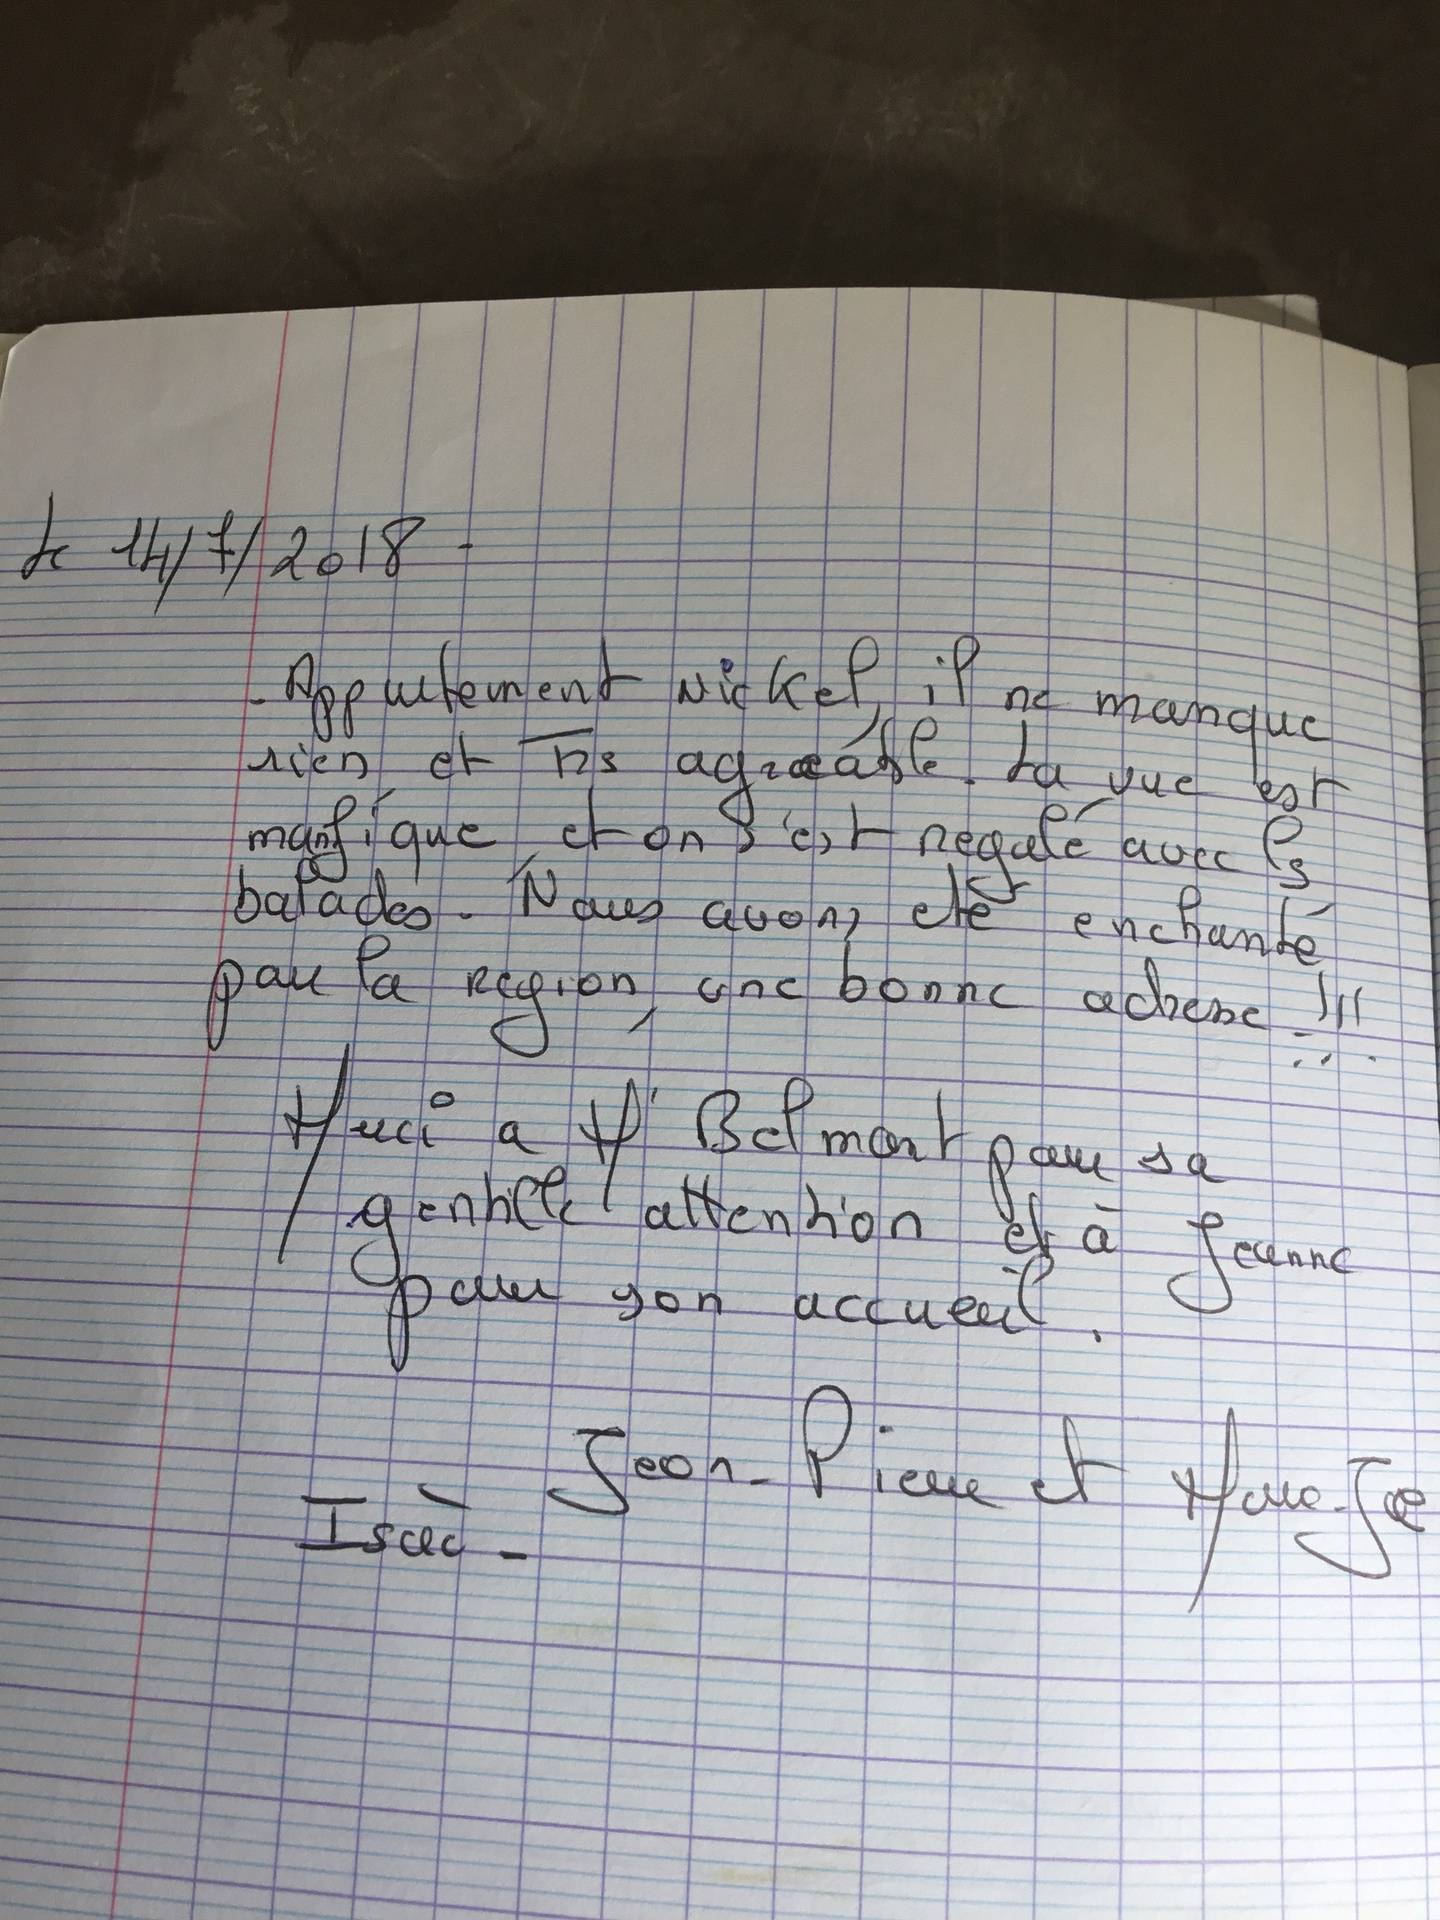 Le 14/7/2018 -
- Appartement Nickel, il ne manque
rien et Trs agréable. La vue est
manfique et on s'est regalé avec ls
balades. Nous avons été enchanté
par la region, une bonne adresse !!!
Merci a Mr Belmont pour sa
gentille attention et à Jeanne
pour son accueil.
Jean-Pierre et Marie-Jo
Isaac -